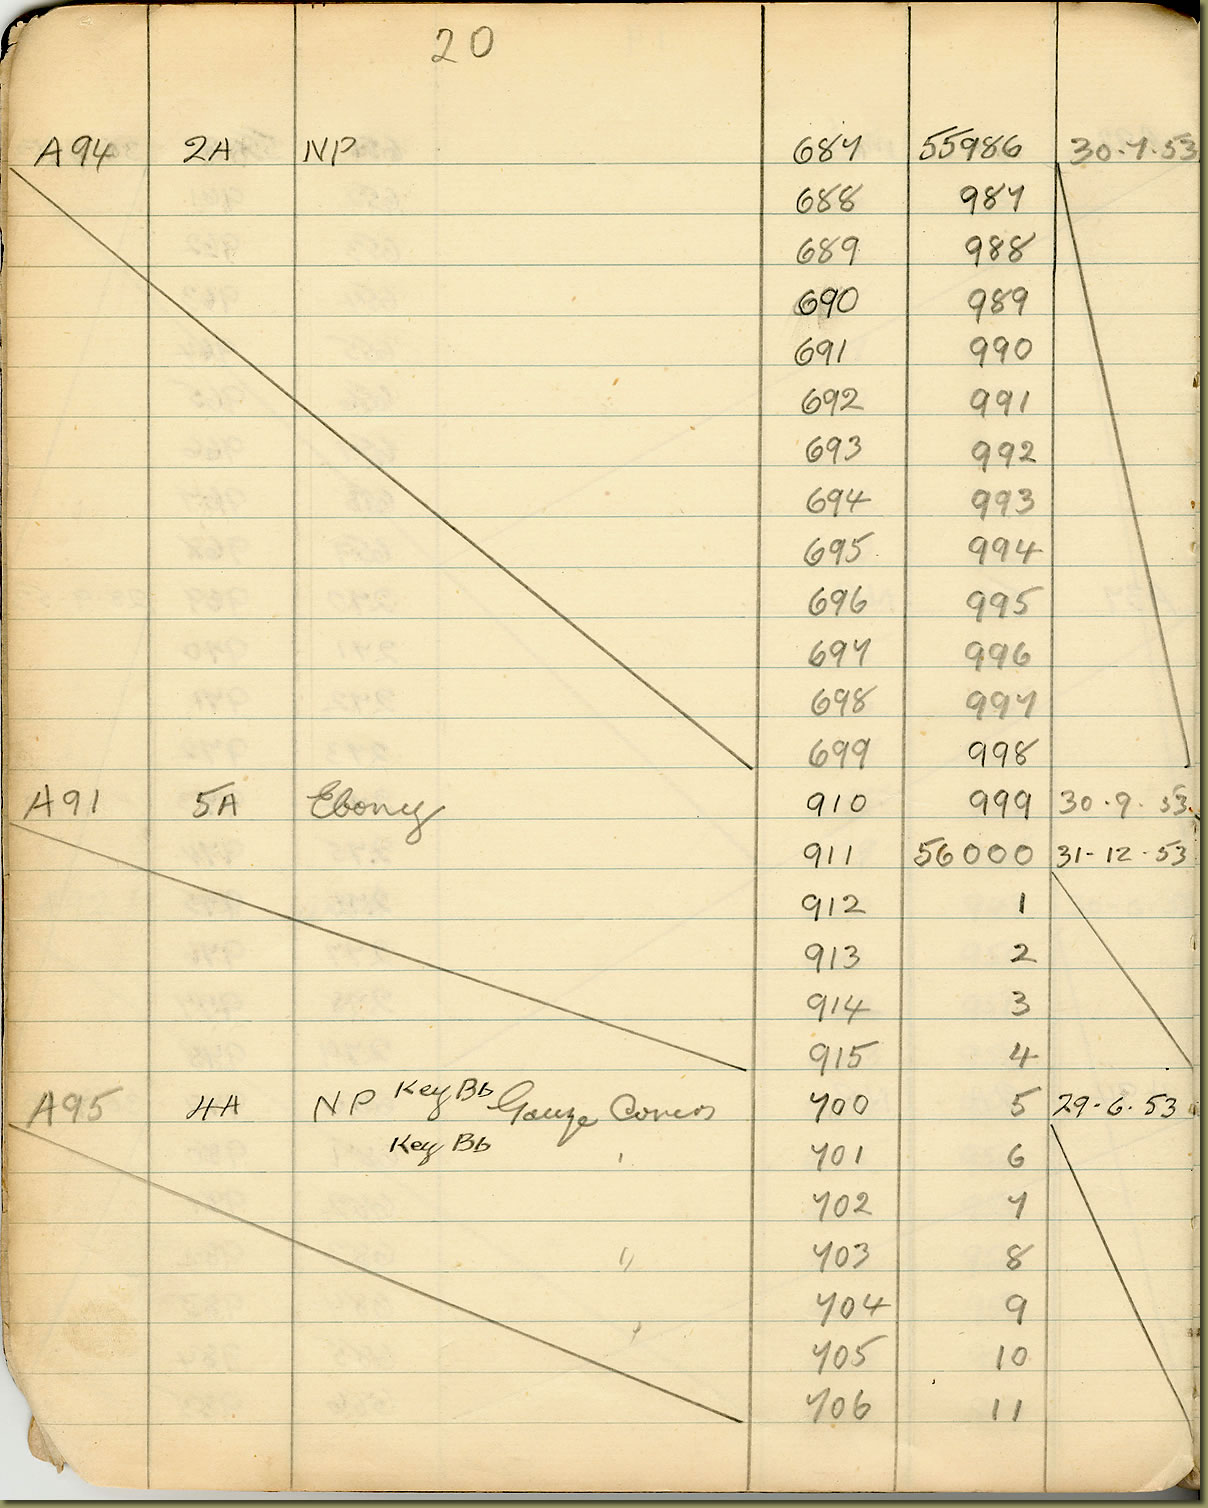 20
A94 2A NP 687 55986 30.7.53
688 987
689 988
690 989
691 990
692 991
693 992
694 993
695 994
696 995
697 996
698 997
699 998
A91 5A Ebony 910 999 30.9.53
911 56000 31-12.53
912 1
913 2
914 3
915 4
A95 4A NP Key Bb Gauze Concos 700 5 29-6.53
Key Bb 701 6
702 7
703 8
704 9
705 10
706 11